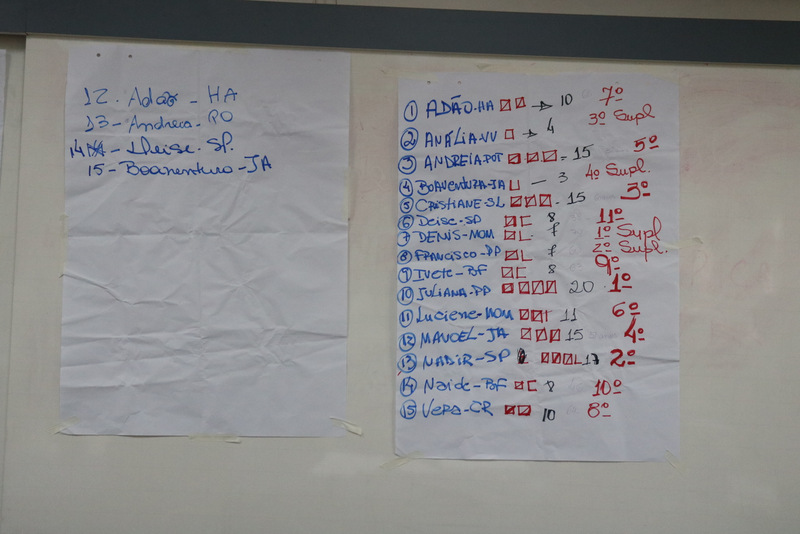 12. Adão - HA
13 - Andreia - PO
14 - Dheise - SP.
15 - Boaventura - JA
1 ADÃO.HA → 10 7º
2 ANÁLIA-VV → 4 3º Supl
3 ANDREIA.POT = 15 5º
4 BOAVENTURA-JA — 3 4º Supl.
5 CRISTIANE-SL - 15 3º
6 Deise-SP 8 11º
7 DENIS-MOM 7 1º Supl
8 FRANCISCO-PP 7 2º Supl.
9 Ivete-BF 8 9º
10 JULIANA-PP 20 1º
11 Luciene-MOM 11 6º
12 MANOEL-JA 15 4º
13 NADIR-SP 17 2º
14 Naide-BF 8 10º
15 Vera-CR 10 8º